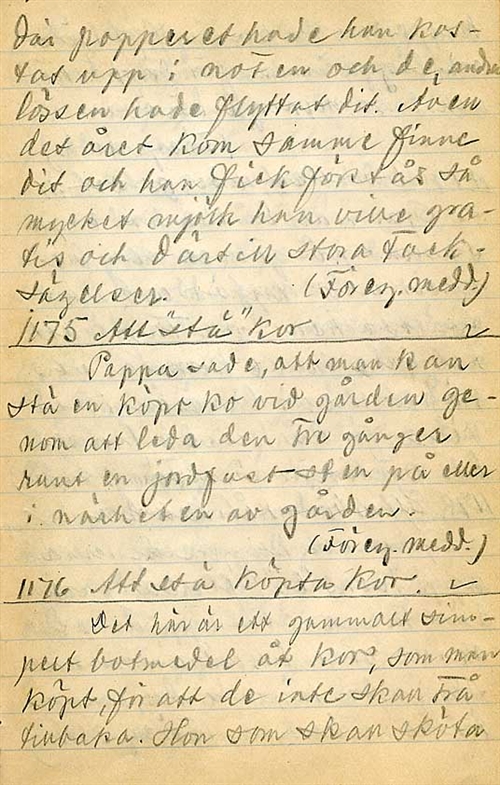 där popperet hade han kas-
tat upp i noten och de andra
lössen hade flyttat dit. Även
det året kom samme finne
dit och han fick förstås så
mycket mjölk han ville gra-
tis och därtill stora tack-
sägelser. (Föreg. medd.)
1175 Att "stå" kor
Pappa sade, att man kan
stå en köpt ko vid gården ge-
nom att leda den tre gånger
runt en jordfast sten på eller
i närheten av gården.
(Föreg. medd.)
1176 Att stå köpta kor.
Det här är ett gammalt sim-
pelt botmedel åt kor, som man
köpt, för att de inte skall trå
tillbaka. Hon som skall sköta